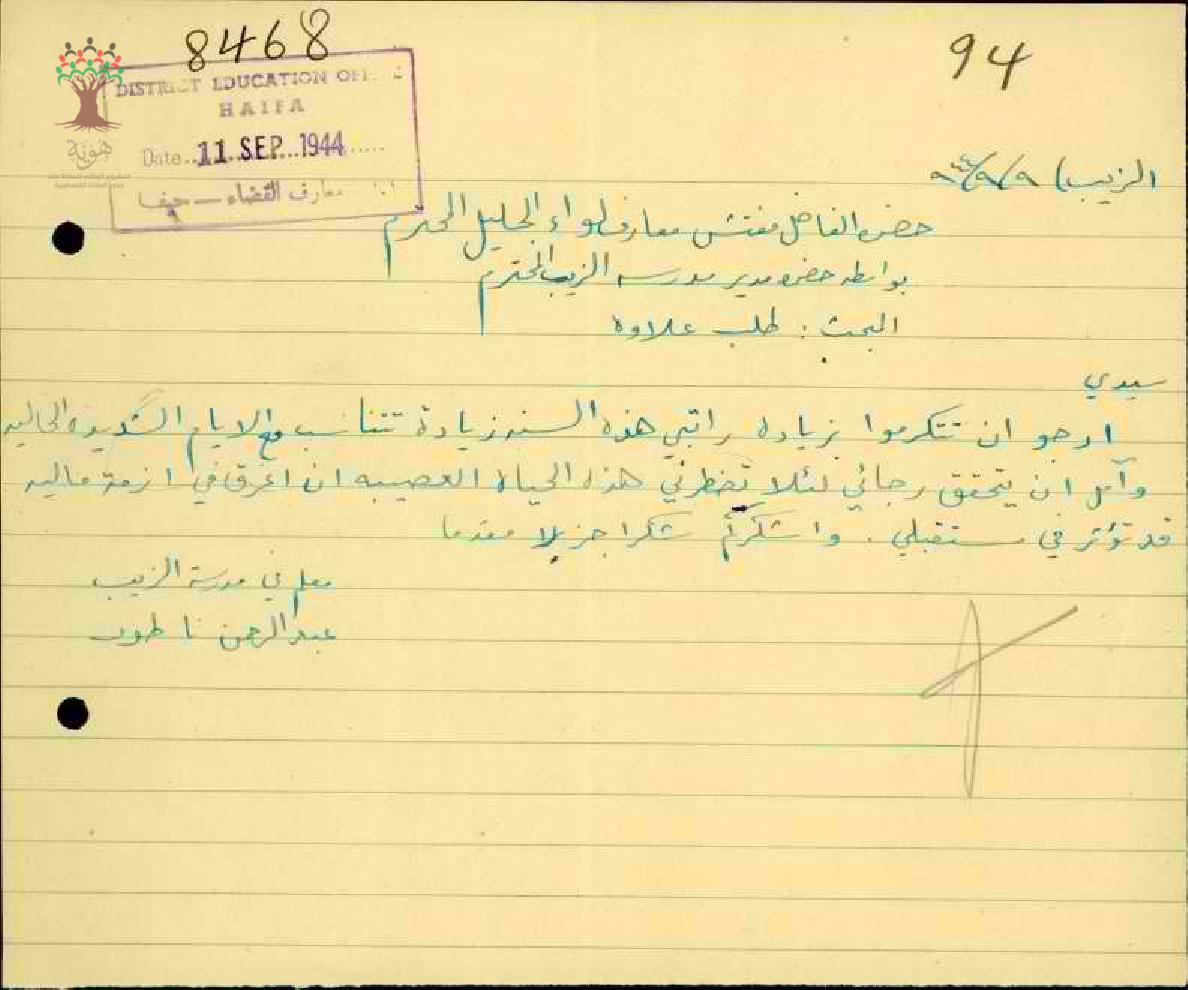 8468
94
DISTRICT EDUCATION OFF
HAIFA
Date 11 SEP 1944
معارف القضاء — حيفا
هوية
الزيب) ٩/٩/٩٤٤
حضرة الفاضل مفتش معارف لواء الجليل المحترم
بواسطه حضرة مدير مدرسه الزيب المحترم
البحث : طلب علاوة
سيدي
ارجو ان تتكرموا بزيادة راتبي هذه السنه زيادة تتناسب مع الايام الشديده الحاليه
وآمل ان يتحقق رجائي لئلا تضطرني هذه الحياة العصيبه ان اغرق في ازمة ماليه
قد تؤثر في مستقبلي . واشكركم شكرا جزيلا مقدما
معلم في مدرسة الزيب
عبد الرحمن